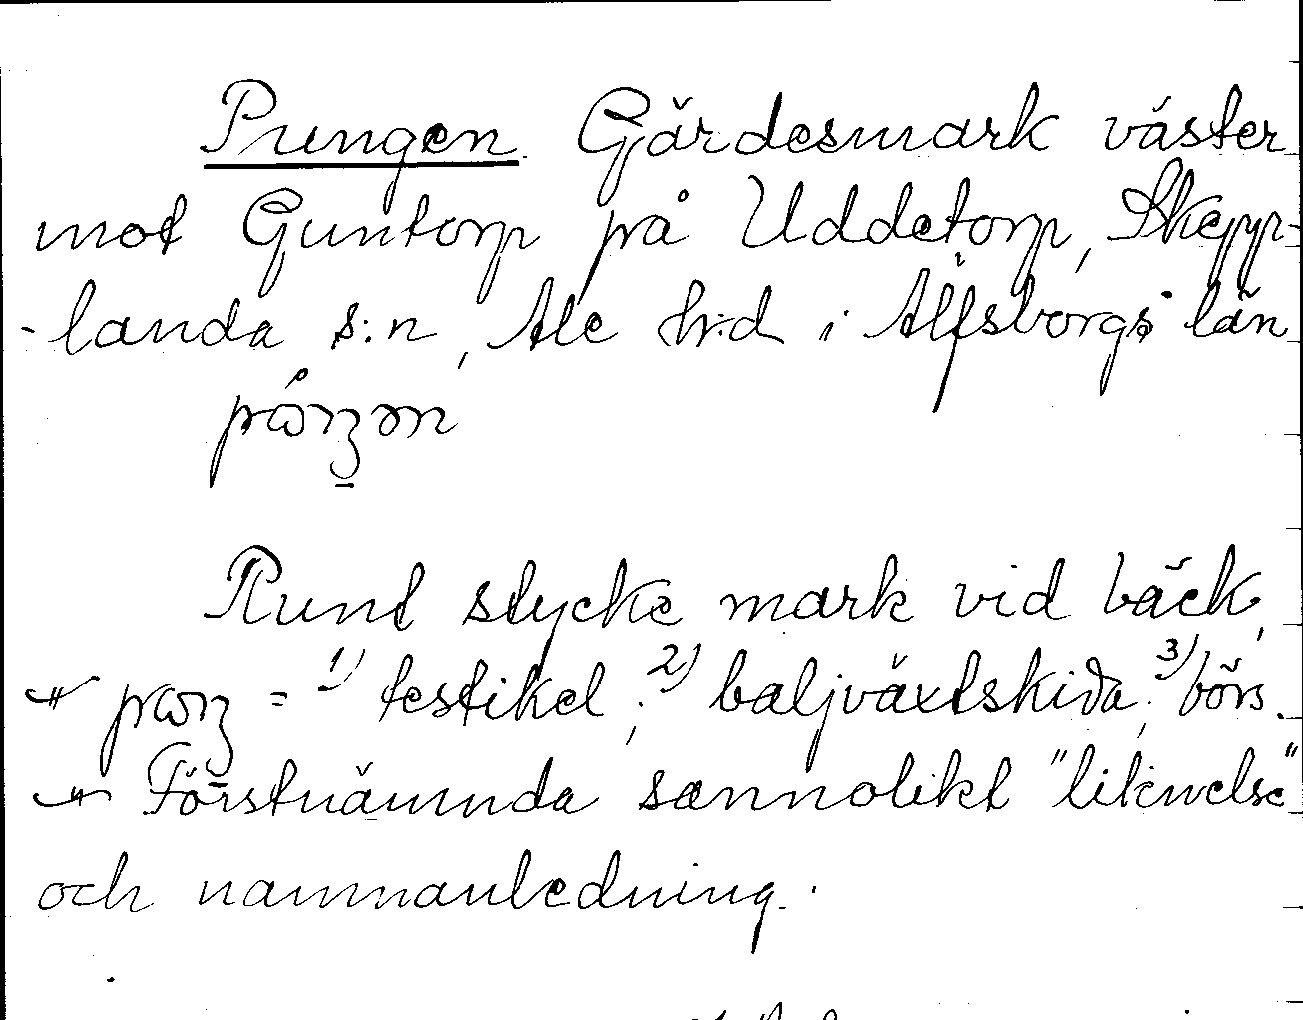 Pungen. Gärdesmark väster
mot Guntorp på Uddetorp, Skepp-
-landa s:n, Ale h:d i Älfsborgs län

Runt stycke mark vid bäck,
= 1) testikel; 2) baljväxtskida; 3) börs.
Förstnämnda sannolikt "liknelse"
och namnanledning.